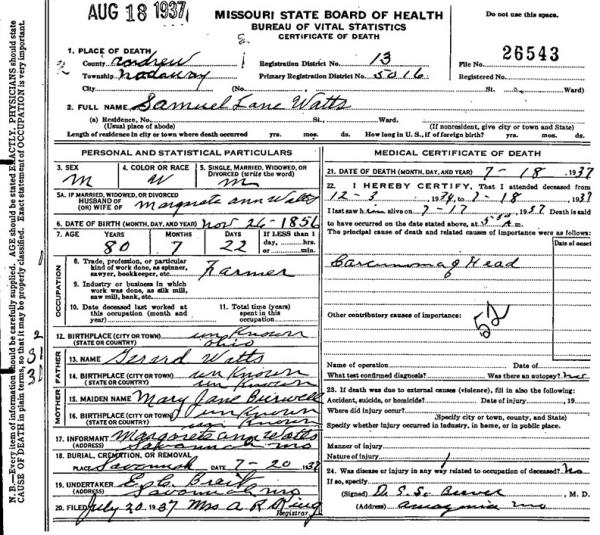 AUG 18 1937
MISSOURI STATE BOARD OF HEALTH
BUREAU OF VITAL STATISTICS
CERTIFICATE OF DEATH
Do not use this space.
1. PLACE OF DEATH
County Andrew Registration District No. 13 File No. 26543
Township Nodaway Primary Registration District No. 5016 Registered No.
City (No. St. Ward)
2. FULL NAME Samuel Lane Watts
(a) Residence, No. St., Ward.
(Usual place of abode) (If nonresident, give city or town and State)
Length of residence in city or town where death occurred yrs. mos. ds. How long in U. S., if of foreign birth? yrs. mos. ds.
PERSONAL AND STATISTICAL PARTICULARS
3. SEX M
4. COLOR OR RACE W
5. SINGLE, MARRIED, WIDOWED, OR DIVORCED (write the word) M
5A. IF MARRIED, WIDOWED, OR DIVORCED
HUSBAND OF
(OR) WIFE OF Margrete Ann Watts
6. DATE OF BIRTH (MONTH, DAY, AND YEAR) Nov 26-1856
7. AGE YEARS MONTHS DAYS If LESS than 1
80 7 22 day, hrs.
or min.
OCCUPATION
8. Trade, profession, or particular
kind of work done, as spinner,
sawyer, bookkeeper, etc. Farmer
9. Industry or business in which
work was done, as silk mill,
saw mill, bank, etc.
10. Date deceased last worked at
this occupation (month and
year)
11. Total time (years)
spent in this
occupation
12. BIRTHPLACE (CITY OR TOWN) unknown
(STATE OR COUNTRY) Ohio
FATHER
13. NAME Gerard Watts
14. BIRTHPLACE (CITY OR TOWN) unknown
(STATE OR COUNTRY) unknown
MOTHER
15. MAIDEN NAME Mary Jane Burwell
16. BIRTHPLACE (CITY OR TOWN) unknown
(STATE OR COUNTRY) unknown
17. INFORMANT Margrete Ann Watts
(ADDRESS) Savannah Mo
18. BURIAL, CREMATION, OR REMOVAL
PLACE Savannah DATE 7-20 1937
19. UNDERTAKER E. C. Breit
(ADDRESS) Savannah Mo
20. FILED July 20 1937 Mrs A R King
Registrar.
MEDICAL CERTIFICATE OF DEATH
21. DATE OF DEATH (MONTH, DAY, AND YEAR) 7-18 1937
22. I HEREBY CERTIFY, That I attended deceased from
12-3 1936, to 7-18 1937
I last saw him alive on 7-17 1937 Death is said
to have occurred on the date stated above, at m.
The principal cause of death and related causes of importance were as follows:
Date of onset
Carcinoma of Head
52
Other contributory causes of importance:
Name of operation Date of
What test confirmed diagnosis? Was there an autopsy? No
23. If death was due to external causes (violence), fill in also the following:
Accident, suicide, or homicide? Date of injury , 19
Where did injury occur?
(Specify city or town, county, and State)
Specify whether injury occurred in industry, in home, or in public place.
Manner of injury
Nature of injury
24. Was disease or injury in any way related to occupation of deceased? No
If so, specify
(Signed) , M. D.
(Address) Amazonia Mo
N. B.—Every item of information should be carefully supplied. AGE should be stated EXACTLY. PHYSICIANS should state
CAUSE OF DEATH in plain terms, so that it may be properly classified. Exact statement of OCCUPATION is very important.